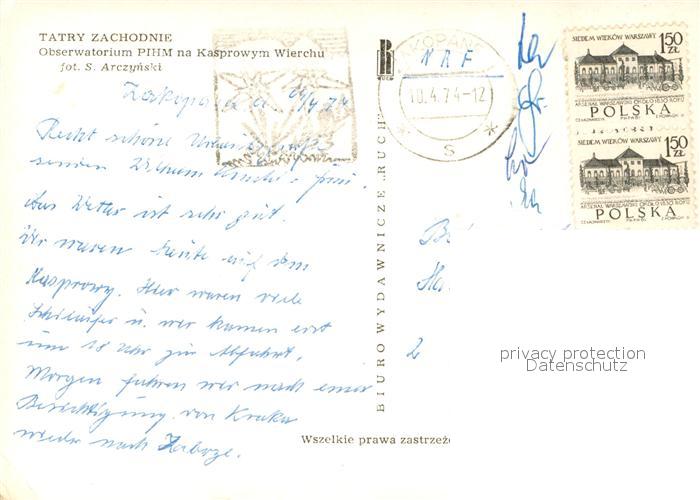 TATRY ZACHODNIE
Obserwatorium PIHM na Kasprowym Wierchu
fot. S. Arczyński
Zakopane
Recht schöne
senden
Das Wetter ist sehr gut.
Wir waren heute auf dem
Kasprowy. Hier waren viele
Schiläufer u. wir kamen erst
um 18 Uhr zur Abfahrt.
Morgen fahren wir nach einer
Besichtigung von Krakau
wieder nach Zabrze.
BIURO WYDAWNICZE „RUCH”
RUCH
NRF
10.4.74-12
s
SIEDEM WIEKÓW WARSZAWY
1,50 ZŁ
ARSENAŁ WARSZAWSKI OKOŁO 1830 ROKU
POLSKA
SIEDEM WIEKÓW WARSZAWY
1,50 ZŁ
ARSENAŁ WARSZAWSKI OKOŁO 1830 ROKU
POLSKA
2
privacy protection
Datenschutz
Wszelkie prawa zastrzeżo